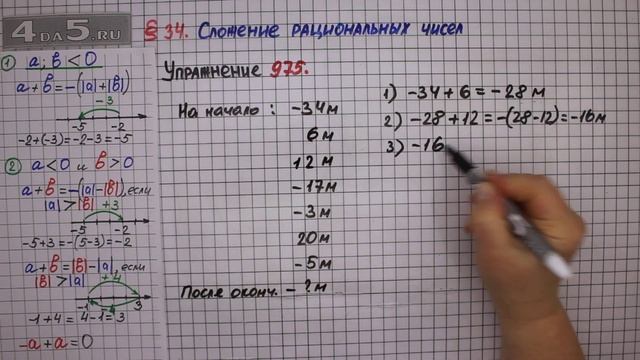 4DA5.RU
§ 34. Сложение рациональных чисел
Упражнение 975.
1) a; b < 0
a + b = -(|a| + |b|)
-3
-5 -2
-2+(-3)=-2-3=-5
2) a < 0 и b > 0
a + b = -(|a| - |b|), если
|a| > |b| +3
-5 -2
-5+3=-(5-3)=-2
a + b = |b| - |a|, если
|b| > |a| +4
-1 3
-1+4=4-1=3
-a + a = 0
На начало: -34 м
6 м
12 м
-17 м
-3 м
20 м
-5 м
После оконч. - ? м
1) -34 + 6 = -28 м
2) -28 + 12 = -(28-12) = -16 м
3) -16